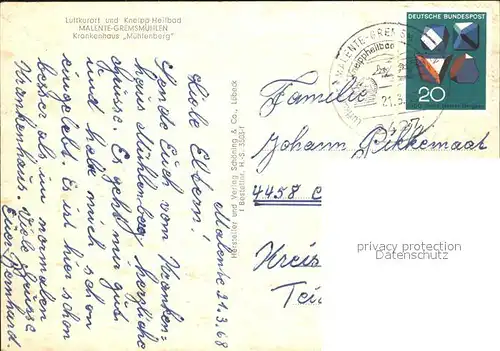 Luftkurort und Kneipp Heilbad
MALENTE-GREMSMÜHLEN
Krankenhaus „Mühlenberg"
Malente 21.3.68
Liebe Eltern!
Sende Euch vom Kranken=
haus Mühlenberg herzliche
Grüsse. Es geht mir gut
und habe mich schon
eingelebt. Es ist hier schon
besser als im normalen
Krankenhaus. Viele Grüsse
Euer Bernhard.
Hersteller und Verlag Schöning & Co., Lübeck
Bestellnr. H.-S. 3503-1
MALENTE-GREMSM
Kneippheilbad
21.3.
DEUTSCHE BUNDESPOST
20
Familie
Johann Pikkemaat
4458
Kreis
privacy protection
Datenschutz